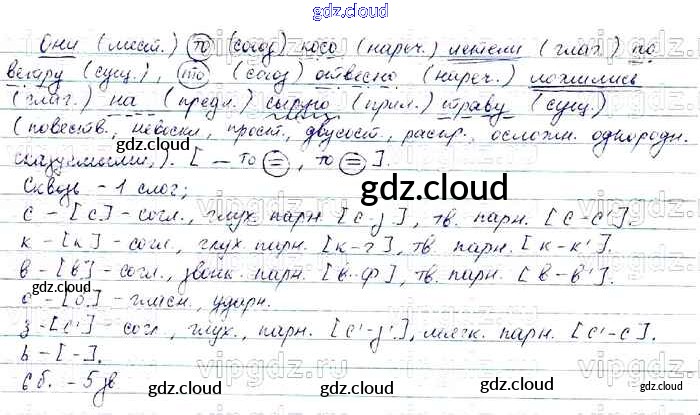 gdz.cloud
Они (мест.) то (союз) косо (нареч.) летели (глаг.) по
ветру (сущ.), то (союз) отвесно (нареч.) ложились
(глаг.) на (предл.) сырую (прил.) траву (сущ.)
(повеств., невоскл., прост., двусост., распр., осложн. однородн.
сказуемыми,). [ – то =, то = ].
Сквозь – 1 слог;
с – [с] – согл., глух. парн. [с-з], тв. парн. [с-с'].
к – [к] – согл., глух. парн. [к-г], тв. парн. [к-к'].
в – [в] – согл., звонк. парн. [в-ф], тв. парн. [в-в'].
о – [о] – гласн., ударн.
з – [с'] – согл., глух., парн. [с'-з'], мягк. парн. [с'-с].
ь – [-].
6 б. – 5 зв
gdz.cloud
gdz.cloud
gdz.cloud
gdz.cloud
gdz.cloud
gdz.cloud
gdz.cloud